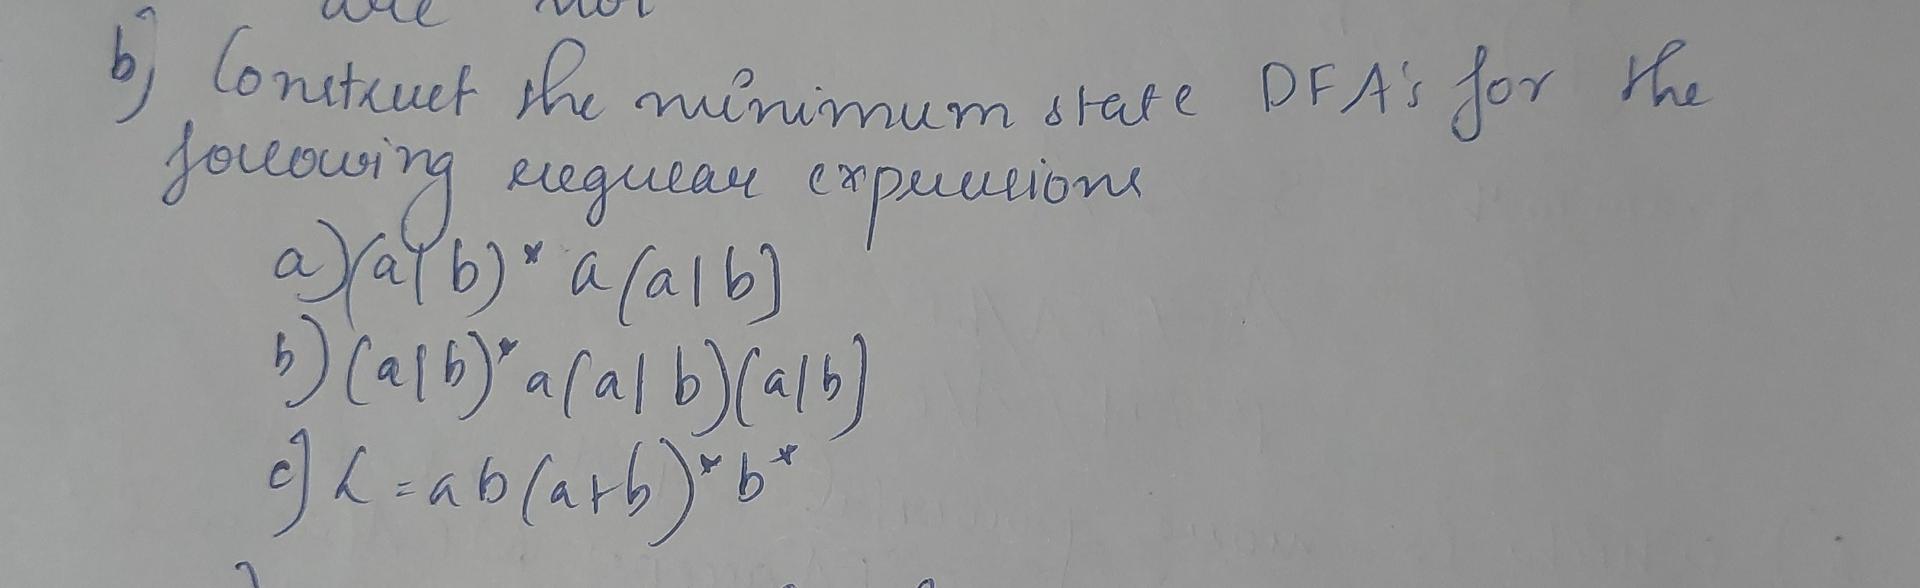 are not
b) Construct the minimum state DFA's for the
following regular expressions
a) (a|b)* a(a|b)
b) (a|b)* a(a|b)(a|b)
c) L = ab(a+b)* b*